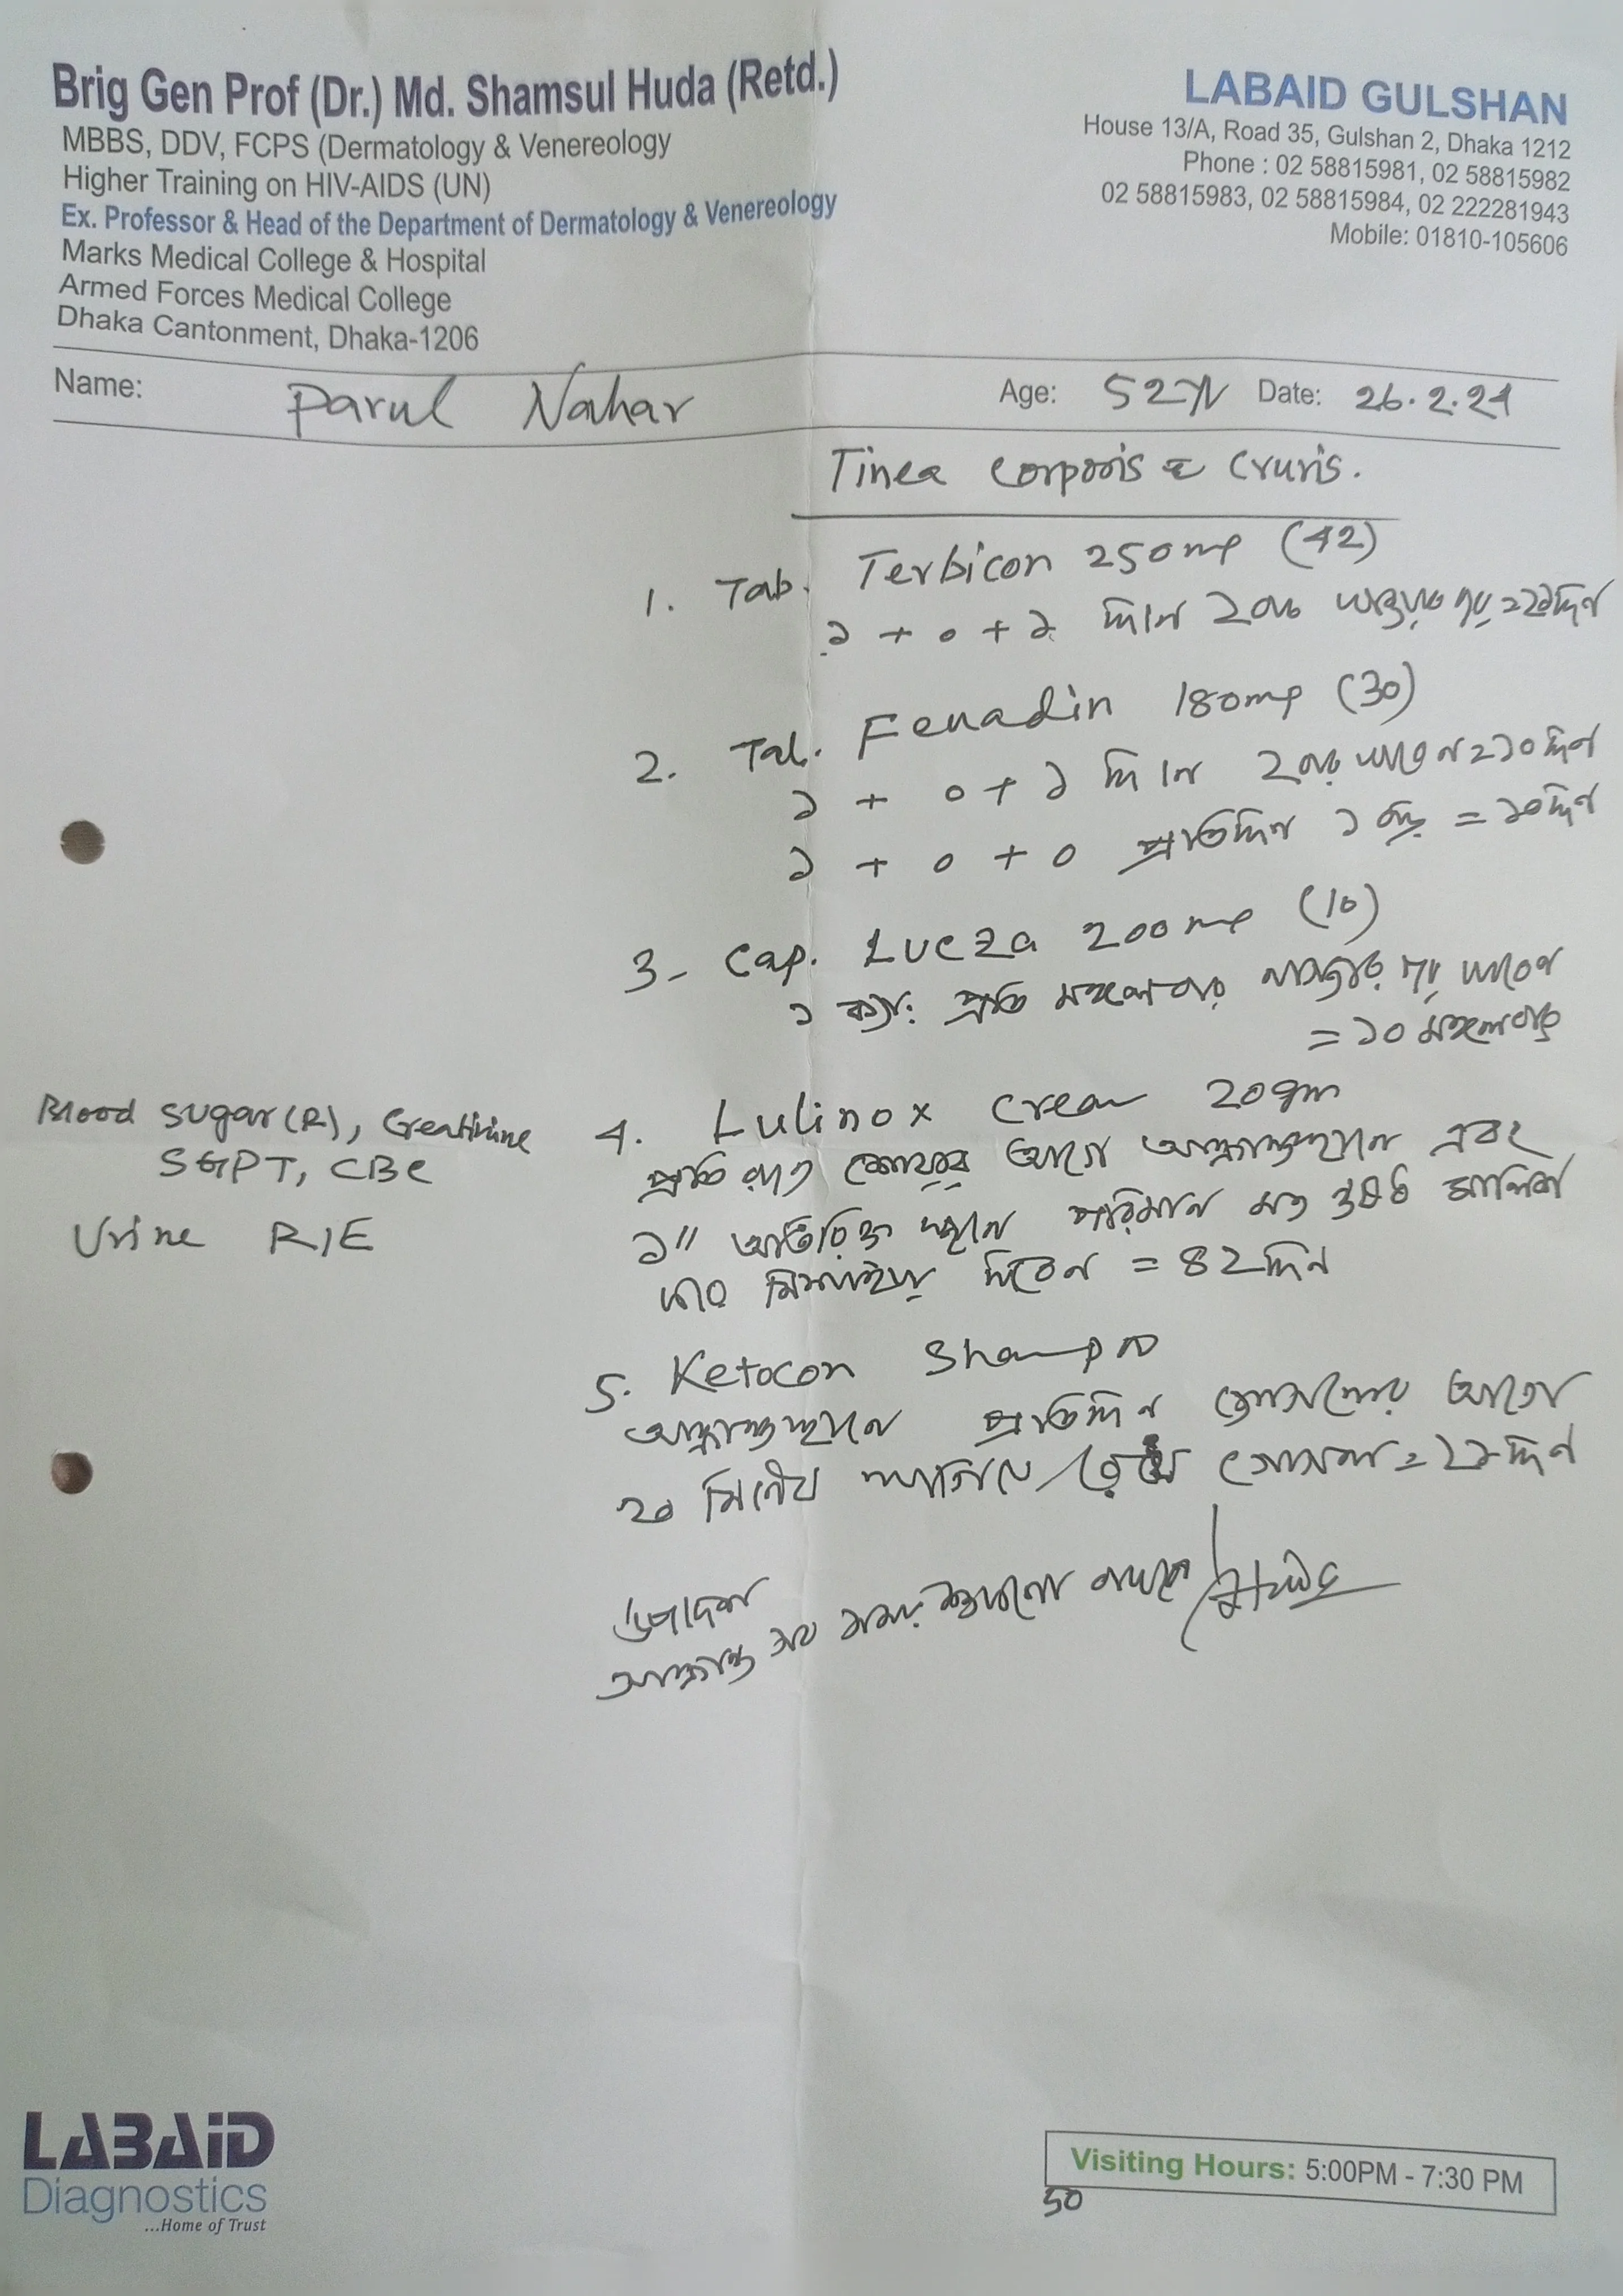 Brig Gen Prof (Dr.) Md. Shamsul Huda (Retd.)
MBBS, DDV, FCPS (Dermatology & Venereology
Higher Training on HIV-AIDS (UN)
Ex. Professor & Head of the Department of Dermatology & Venereology
Marks Medical College & Hospital
Armed Forces Medical College
Dhaka Cantonment, Dhaka-1206
LABAID GULSHAN
House 13/A, Road 35, Gulshan 2, Dhaka 1212
Phone : 02 58815981, 02 58815982
02 58815983, 02 58815984, 02 222281943
Mobile: 01810-105606
Name: Parul Nahar Age: 52 Date: 26.2.24
Tinea corporis & Cruris.
1. Tab. Terbicon 250mg (42)
১ + ০ + ১ দিনে ২বার = ২১দিন
2. Tab. Fenadin 180mg (30)
১ + ০ + ১ দিনে ২বার = ১০দিন
১ + ০ + ০ প্রতিদিন ১ বার = ১০দিন
3- Cap. Lucza 200mg (10)
১ ক্যাপ: প্রতি মঙ্গলবার খাবার পর খাবেন
= ১০ মঙ্গলবার
Blood Sugar (R), Creatinine
SGPT, CBC
Urine R/E
4. Lulinox cream 20gm
প্রতি রাতে শোবার আগে আক্রান্তস্থানে এবং
১" অতিরিক্ত স্থানে পরিমান মত
দিবেন = ৪২দিন
5. Ketocon Shampoo
আক্রান্তস্থানে প্রতিদিন গোসলের আগে
২০ মিনিট লাগিয়ে গোসল = ২১দিন
উপদেশ
আক্রান্ত
LABAID
Diagnostics
...Home of Trust
Visiting Hours: 5:00PM - 7:30 PM
50